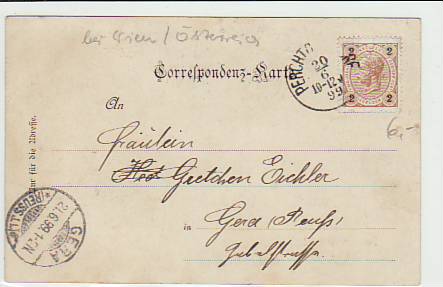 bei Wien / Österreich
Correspondenz-Karte
PERCHTO
20
6
10-12
99
2 2
2 2
An
Fräulein
Gretchen Eichler
in Gera (Reuß)
Gabelstrasse.
Nur für die Adresse.
GERA
(REUSS J.L.)
21.6.99.1-2N.
6,-